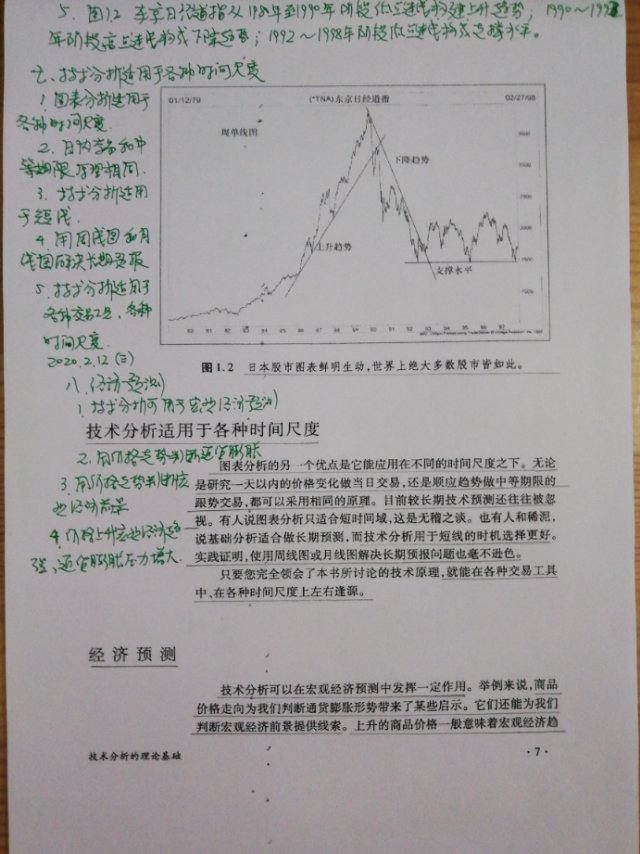 5. 图1.2 东京日经道指从198年至1990年阶段低点连线构成上升趋势；1990～1992
年阶段高点连线构成下降趋势；1992～1998年阶段低点连线构成支撑水平。
七、技术分析适用于各种时间尺度
1. 图表分析适用于
各种时间尺度.
2. 日内交易和中
等期限原理相同.
3. 技术分析适用
于短线.
4. 用周线图和月
线图解决长期预报
5. 技术分析适用于
各种交易工具、各种
时间尺度.
2020.2.12 (三)
八、经济预测
1. 技术分析可用于宏观经济预测
01/12/79 (*TNA)东京日经道指 02/27/98
周单线图
下降趋势
上升趋势
支撑水平
80 81 82 83 84 85 86 87 88 89 90 91 92 93 94 95 96 97
图1.2 日本股市图表鲜明生动,世界上绝大多数股市皆如此。
技术分析适用于各种时间尺度
2. 用价格走势判断通货膨胀
3. 用价格走势判断宏
观经济前景
4. 价格上升宏观经济趋
强、通货膨胀压力增大.
图表分析的另一个优点是它能应用在不同的时间尺度之下。无论
是研究一天以内的价格变化做当日交易,还是顺应趋势做中等期限的
跟势交易,都可以采用相同的原理。目前较长期技术预测还往往被忽
视。有人说图表分析只适合短时间域,这是无稽之谈。也有人和稀泥,
说基础分析适合做长期预测,而技术分析用于短线的时机选择更好。
实践证明,使用周线图或月线图解决长期预报问题也毫不逊色。
只要您完全领会了本书所讨论的技术原理,就能在各种交易工具
中、在各种时间尺度上左右逢源。
经济预测
技术分析可以在宏观经济预测中发挥一定作用。举例来说,商品
价格走向为我们判断通货膨胀形势带来了某些启示。它们还能为我们
判断宏观经济前景提供线索。上升的商品价格一般意味着宏观经济趋
技术分析的理论基础
·7·